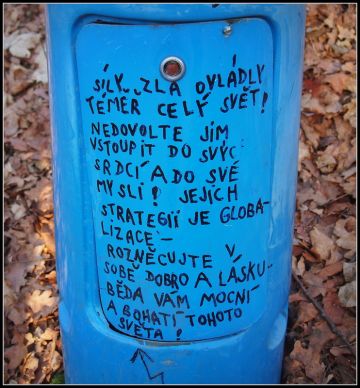 SÍLY ZLA OVLÁDLY
TÉMĚŘ CELÝ SVĚT!
NEDOVOLTE JIM
VSTOUPIT DO SVÝC
SRDCÍ A DO SVÉ
MYSLI! JEJICH
STRATEGIÍ JE GLOBA-
LIZACE -
ROZNĚCUJTE V
SOBĚ DOBRO A LÁSKU -
BĚDA VÁM MOCNÍ
A BOHATÍ TOHOTO
SVĚTA!